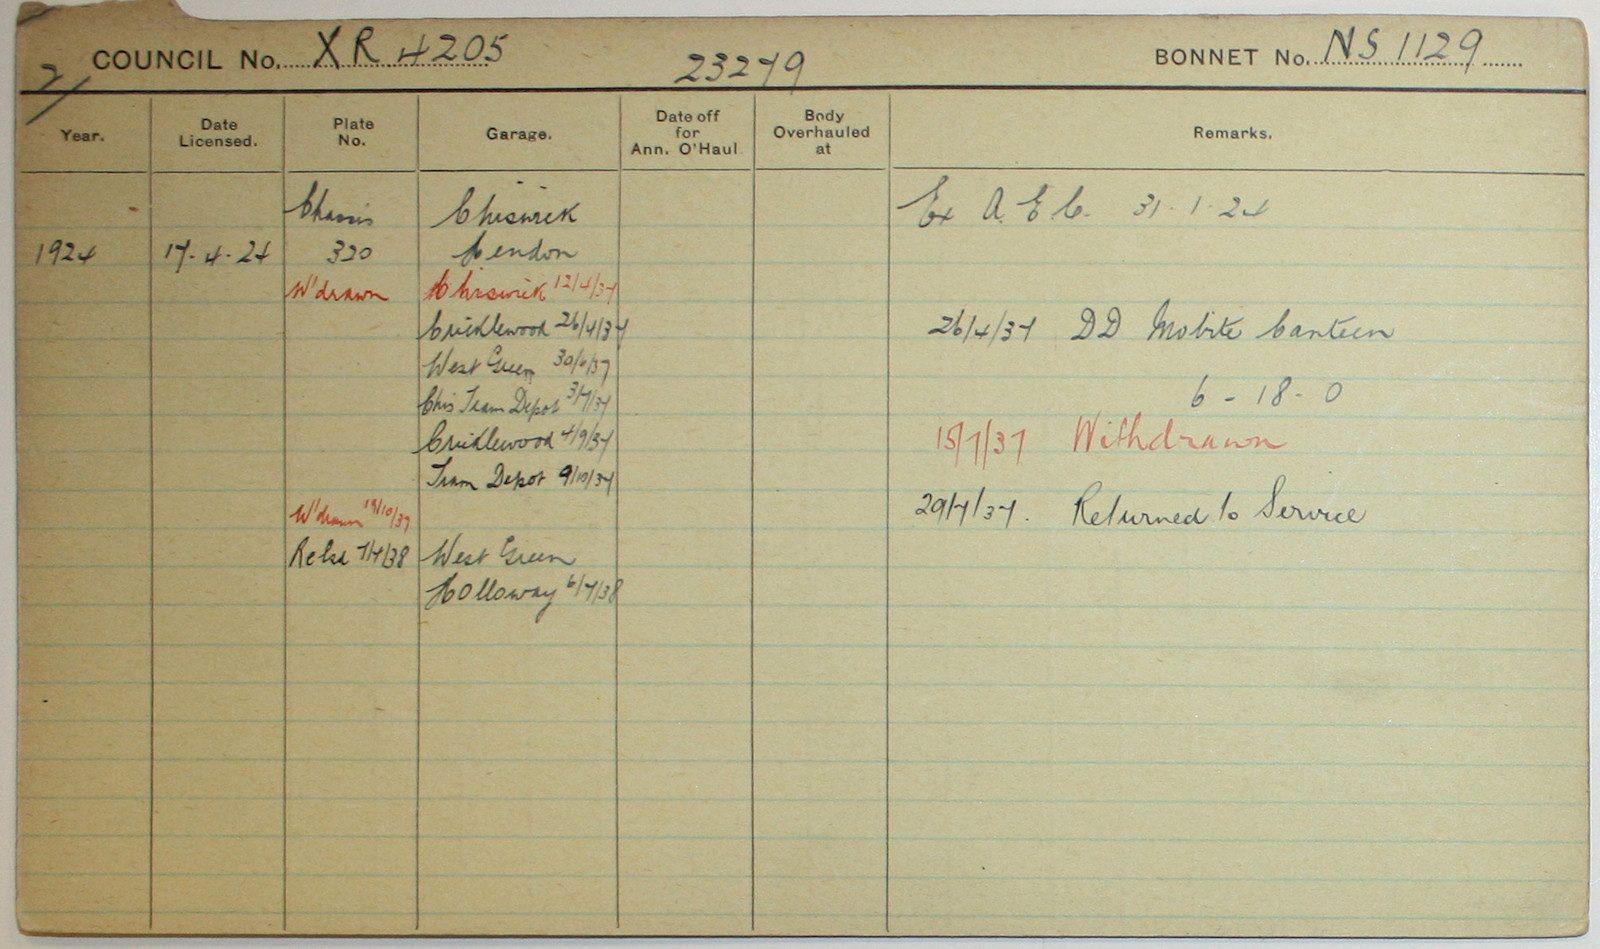 2/ COUNCIL No. XR 4205 23279 BONNET No. NS 1129
Year. Date Licensed. Plate No. Garage. Date off for Ann. O'Haul. Body Overhauled at Remarks.
Chassis Chiswick Ex A.E.C. 31-1-24
1924 17-4-24 320 Hendon
W'drawn Chiswick 12/4/37
Cricklewood 26/4/37 26/4/37 DD Mobile Canteen
West Green 30/6/37
Chis Tram Depot 3/7/37 6-18-0
Cricklewood 4/9/37 15/7/37 Withdrawn
Tram Depot 9/10/37
W'drawn 19/10/37 29/7/37. Returned to Service
Relsd 7/4/38 West Green
Holloway 6/7/38